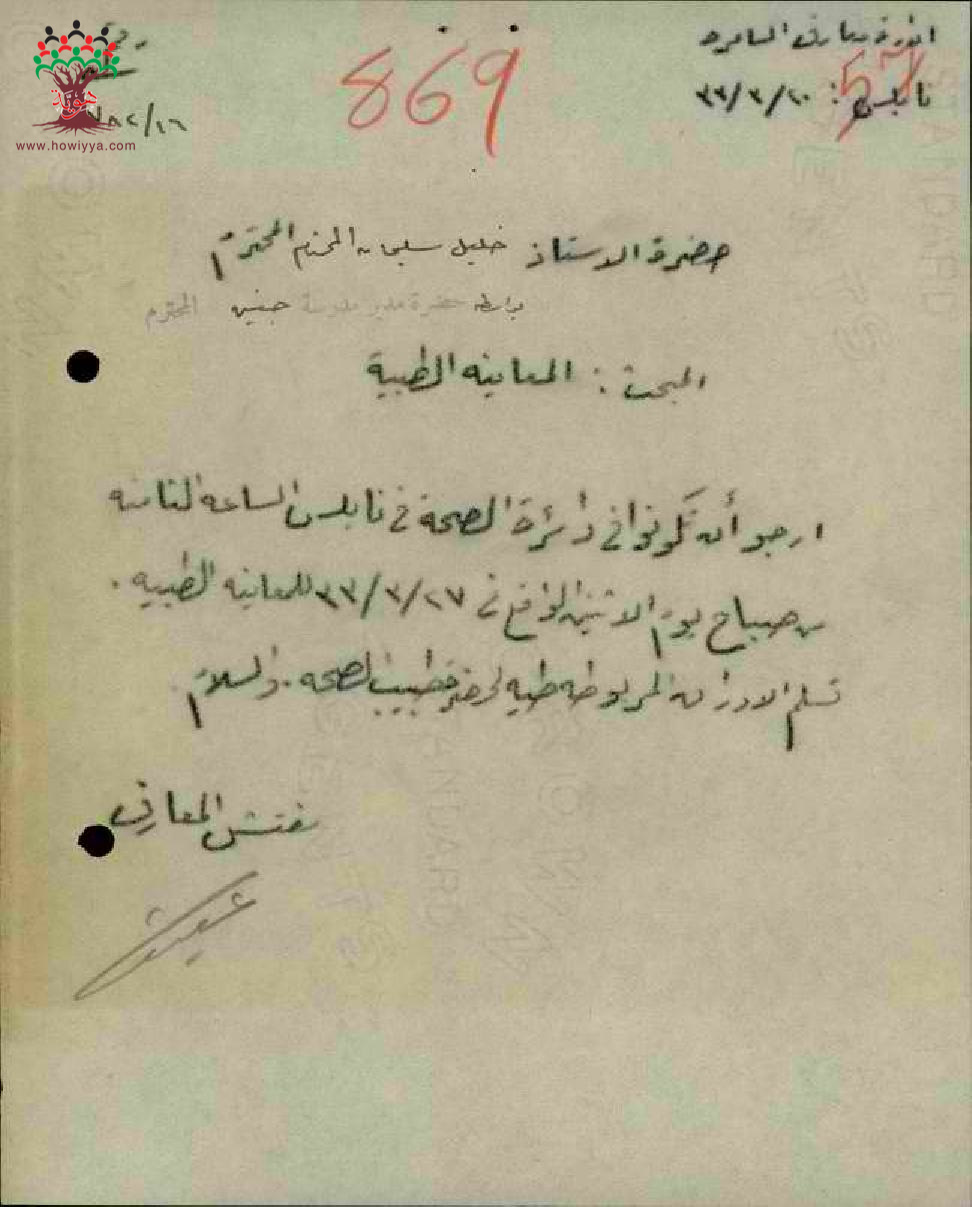 ادارة معارف السامره
نابلس : ٢٠/٣/٣٣
57
869
www.howiyya.com
حضرة الاستاذ خليل سليمان المحترم
بواسطة حضرة مدير مدرسة جنين المحترم
المبحث : المعاينه الطبية
ارجو أن تكونوا في دائرة الصحة في نابلس الساعه الثامنه
من صباح يوم الاثنين الواقع في ٢٧/٣/٣٣ للمعاينه الطبيه .
تسلم الاوراق المربوطه طيه لحضرة طبيب الصحه . والسلام
مفتش المعارف